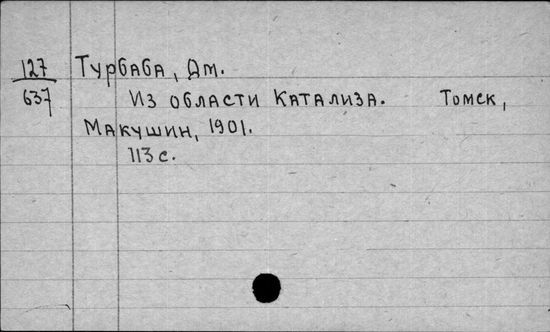 127
637
Турбаба, Дм.
Из области Катализа. Томск,
Макушин, 1901.
113 с.